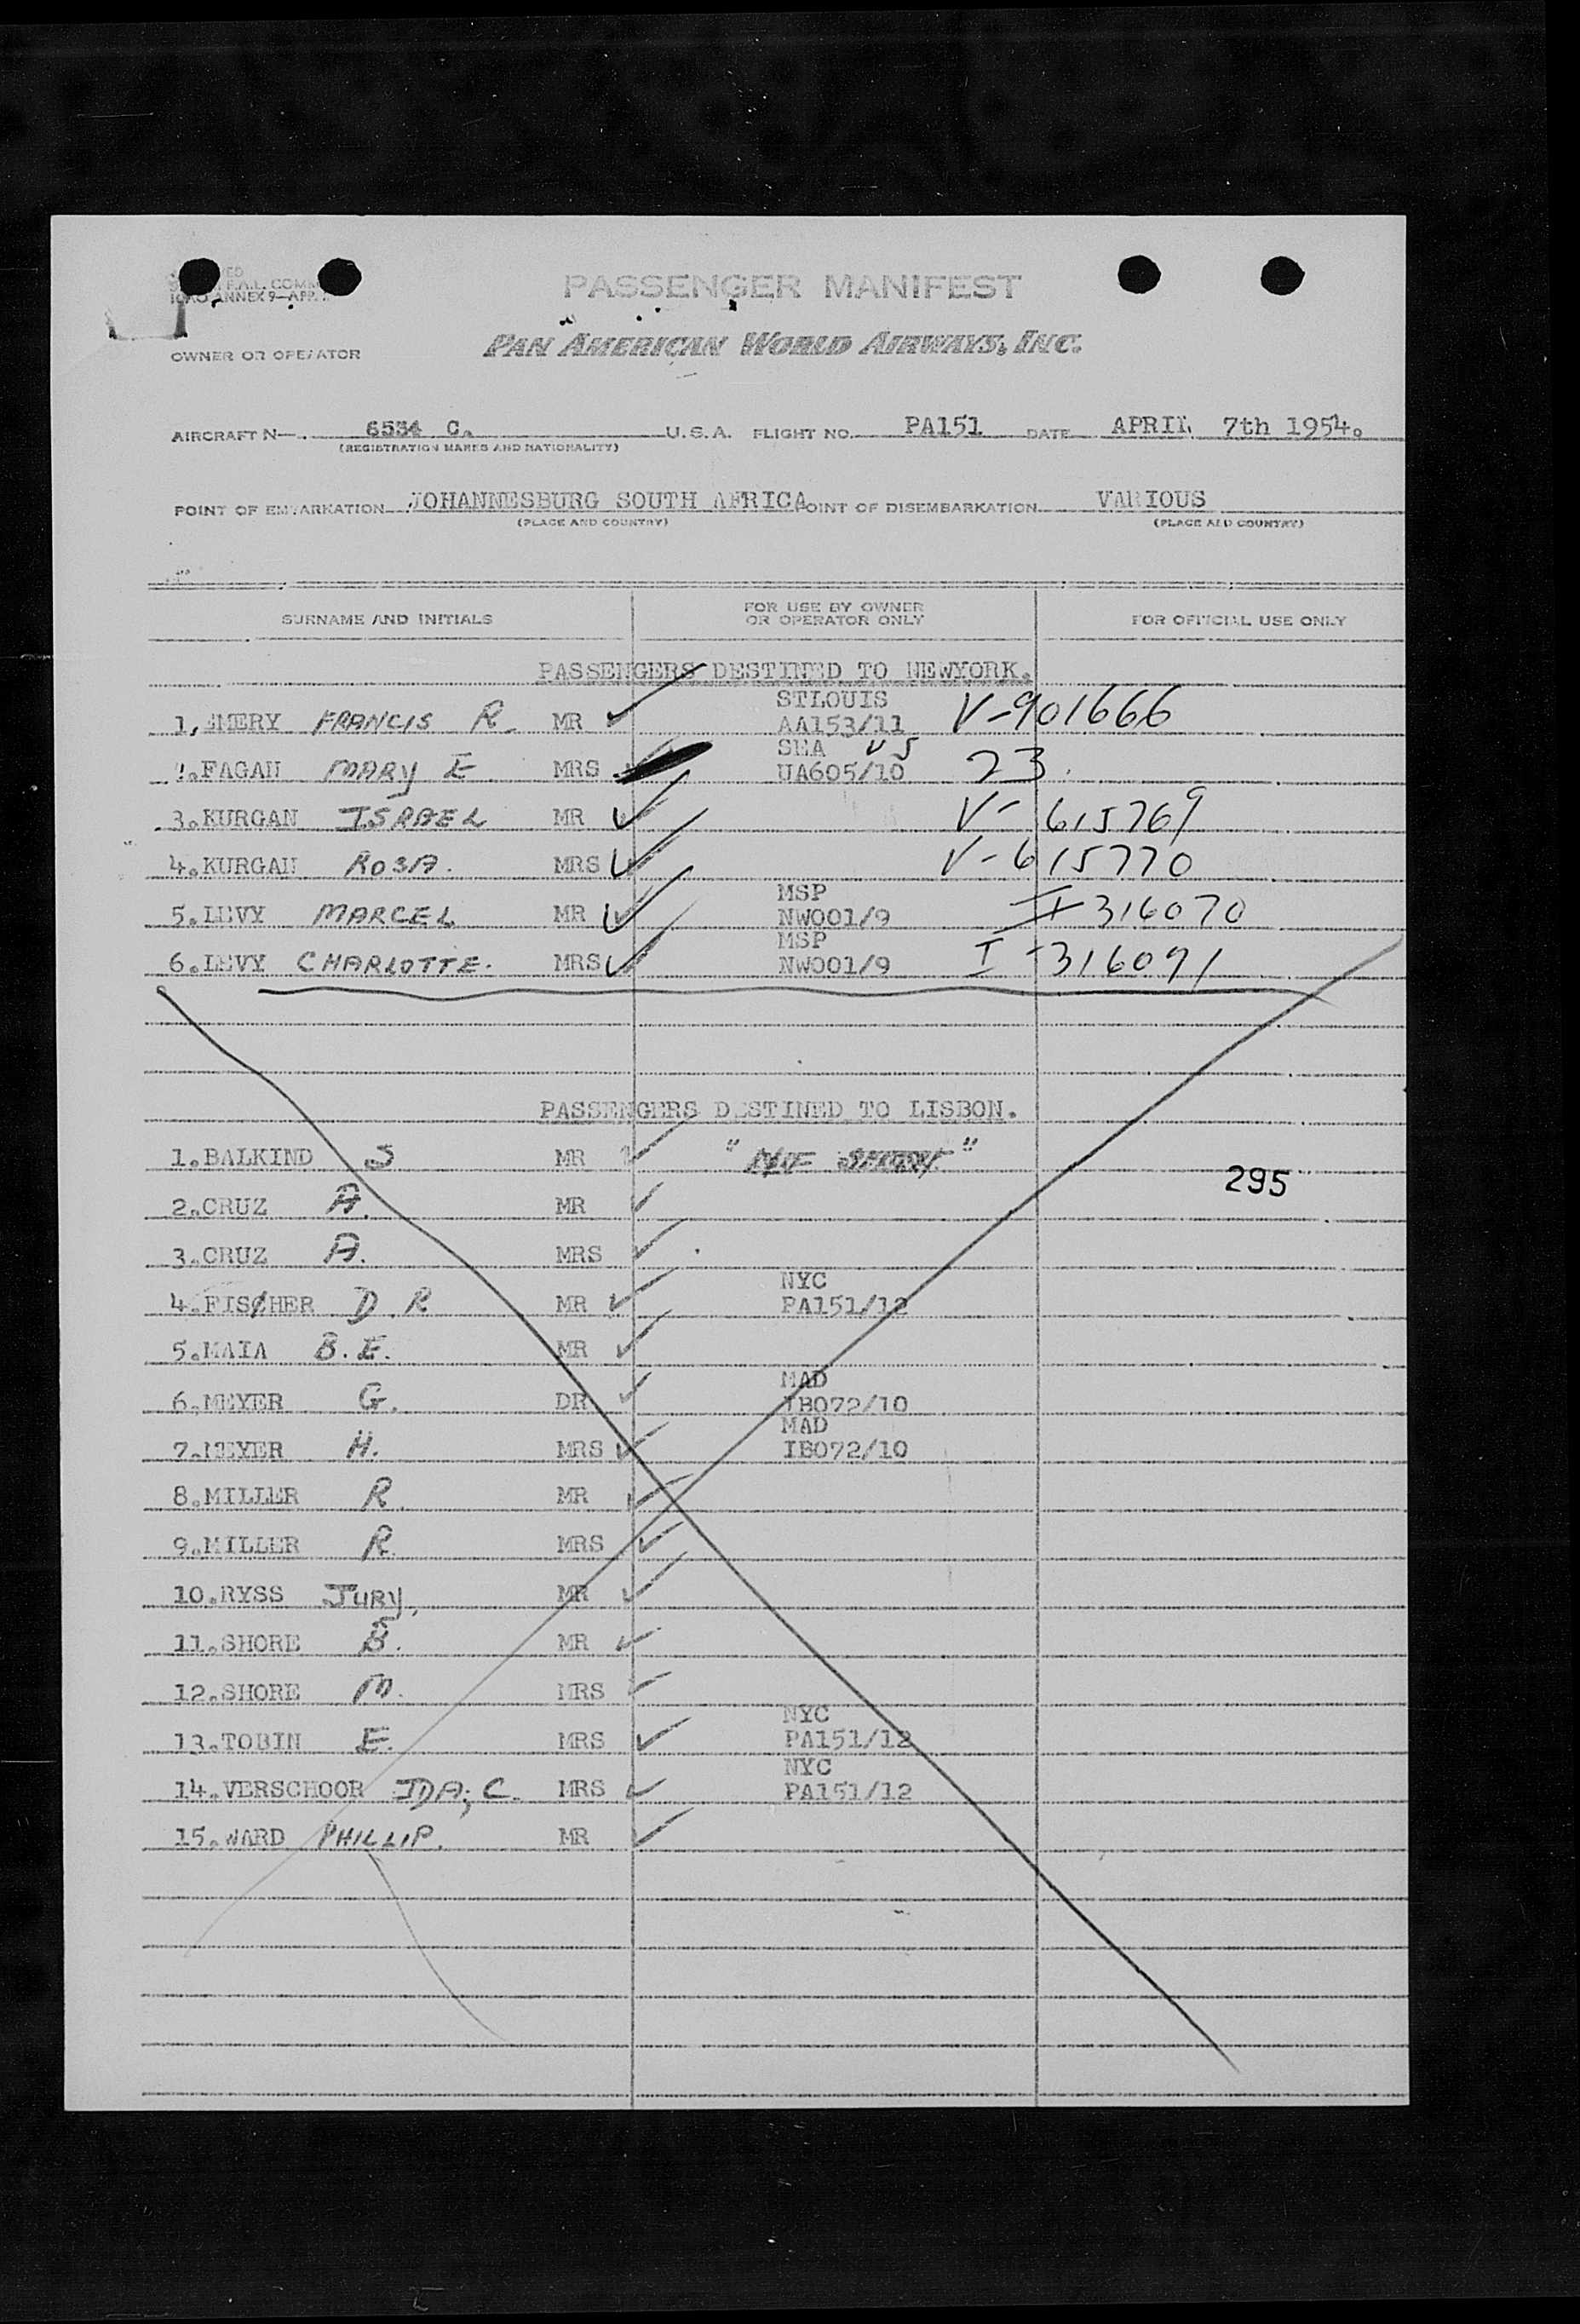 PASSENGER MANIFEST
ANNEX 9—APP.
OWNER OR OPERATOR PAN AMERICAN WORLD AIRWAYS, INC.
AIRCRAFT N— 6534 C. U.S.A. FLIGHT NO. PA151 DATE APRIL 7th 1954.
(REGISTRATION MARKS AND NATIONALITY)
POINT OF EMBARKATION JOHANNESBURG SOUTH AFRICA POINT OF DISEMBARKATION VARIOUS
(PLACE AND COUNTRY) (PLACE AND COUNTRY)
SURNAME AND INITIALS FOR USE BY OWNER OR OPERATOR ONLY FOR OFFICIAL USE ONLY
PASSENGERS DESTINED TO NEWYORK.
STLOUIS
1. EMERY FRANCIS R. MR AA153/11 V-901666
SEA US
2. FAGAN MARY E MRS UA605/10 23
3. KURGAN ISRAEL MR V-615769
4. KURGAN ROSA. MRS V-615770
MSP
5. LEVY MARCEL MR NW001/9 I 316070
MSP
6. LEVY CHARLOTTE. MRS NW001/9 I-316091
PASSENGERS DESTINED TO LISBON.
1. BALKIND S MR
295
2. CRUZ A. MR
3. CRUZ A. MRS
NYC
4. FISCHER D.R MR PA151/12
5. MAIA B.E. MR
MAD
6. MEYER G. DR IB072/10
MAD
7. MEYER H. MRS IB072/10
8. MILLER R. MR
9. MILLER R. MRS
10. RYSS JURY. MR
11. SHORE B. MR
12. SHORE M. MRS
NYC
13. TOBIN E. MRS PA151/12
NYC
14. VERSCHOOR IDA, C. MRS PA151/12
15. WARD PHILLIP. MR